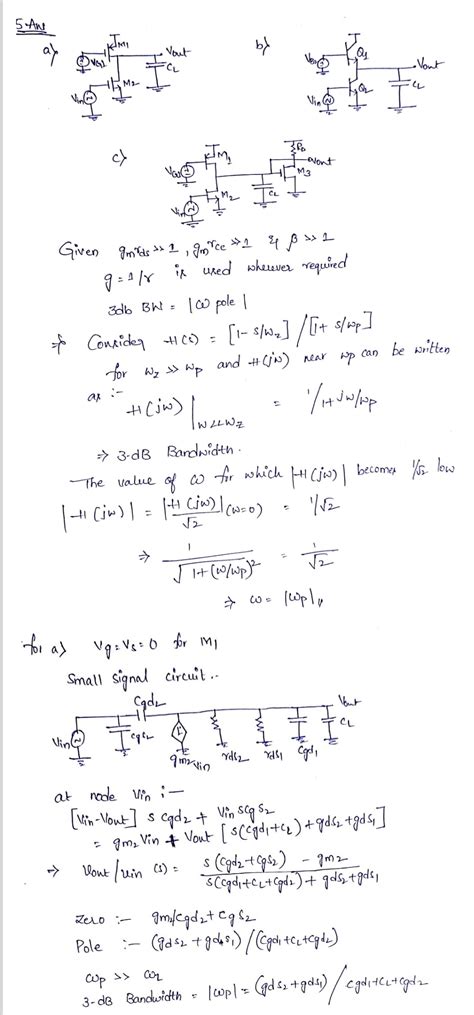 5 Ans
a)
M1
Vout
VG1
CL
M2
Vin
b)
Q1
Vout
Q2
CL
Vin
c)
M1
RD
Vout
M3
CL
M2
Vin
Given gm rds >> 1, gm rce >> 1 & β >> 1
g = 1/r is used wherever required
3db BW = |ω pole|
⇒ Consider H(s) = [1 - s/ωz] / [1 + s/ωp]
for ωz >> ωp and H(jω) near ωp can be written
as :- H(jω)|ω<<ωz = 1/1+jω/ωp
⇒ 3-dB Bandwidth.
The value of ω for which |H(jω)| becomes 1/√2 low
|H(jω)| = |H(jω)|/√2 (ω=0) = 1/√2
⇒ 1/√(1+(ω/ωp)²) = 1/√2
⇒ ω = |ωp| //
for a) Vg = Vs = 0 for M1
Small signal circuit..
Cgd2
Vout
Vin
Cgs2
gm2 Vin
rds2
rds1
Cgd1
CL
at node Vin :-
[Vin-Vout] s Cgd2 + Vin s Cgs2
= gm2 Vin + Vout [s(Cgd1+CL) + gds2 + gds1]
⇒ Vout/Vin (s) = s(Cgd2+Cgs2) - gm2 / s(Cgd1+CL+Cgd2) + gds2+gds1
Zero :- gm2/Cgd2 + Cgs2
Pole :- (gds2 + gds1)/(Cgd1+CL+Cgd2)
ωp >> ωz
3-dB Bandwidth = |ωp| = (gds2+gds1) / Cgd1+CL+Cgd2